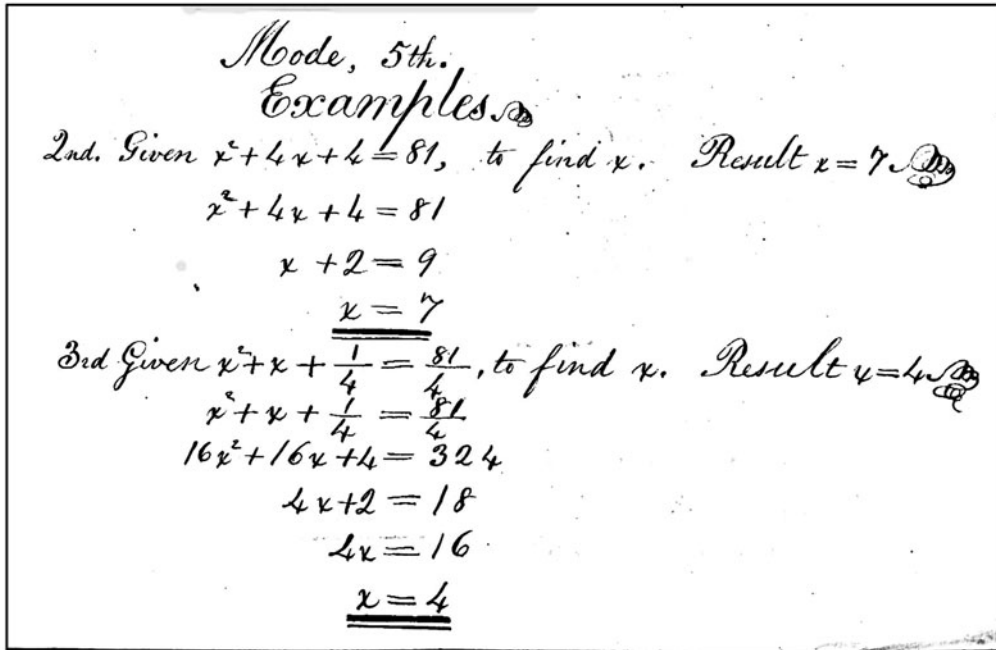 Mode, 5th.
Examples
2nd. Given x²+4x+4=81, to find x. Result x=7
x²+4x+4=81
x+2=9
x=7
3rd Given x²+x+1/4=81/4, to find x. Result x=4
x²+x+1/4=81/4
16x²+16x+4=324
4x+2=18
4x=16
x=4